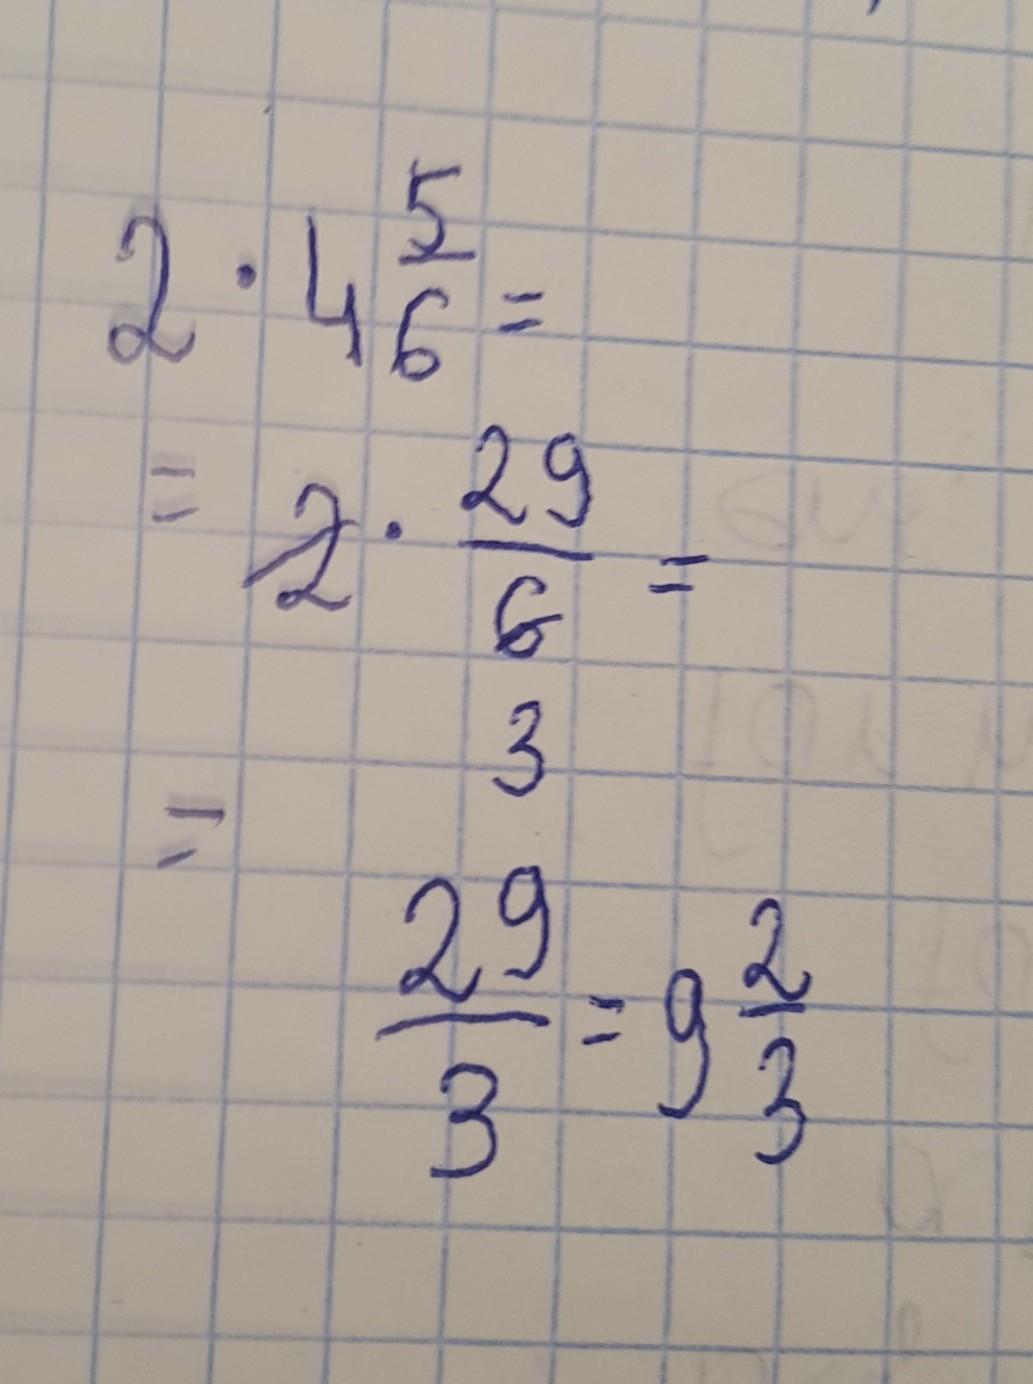 2 · 4 5/6 =
= 2 · 29/6 =
3
= 29/3 = 9 2/3